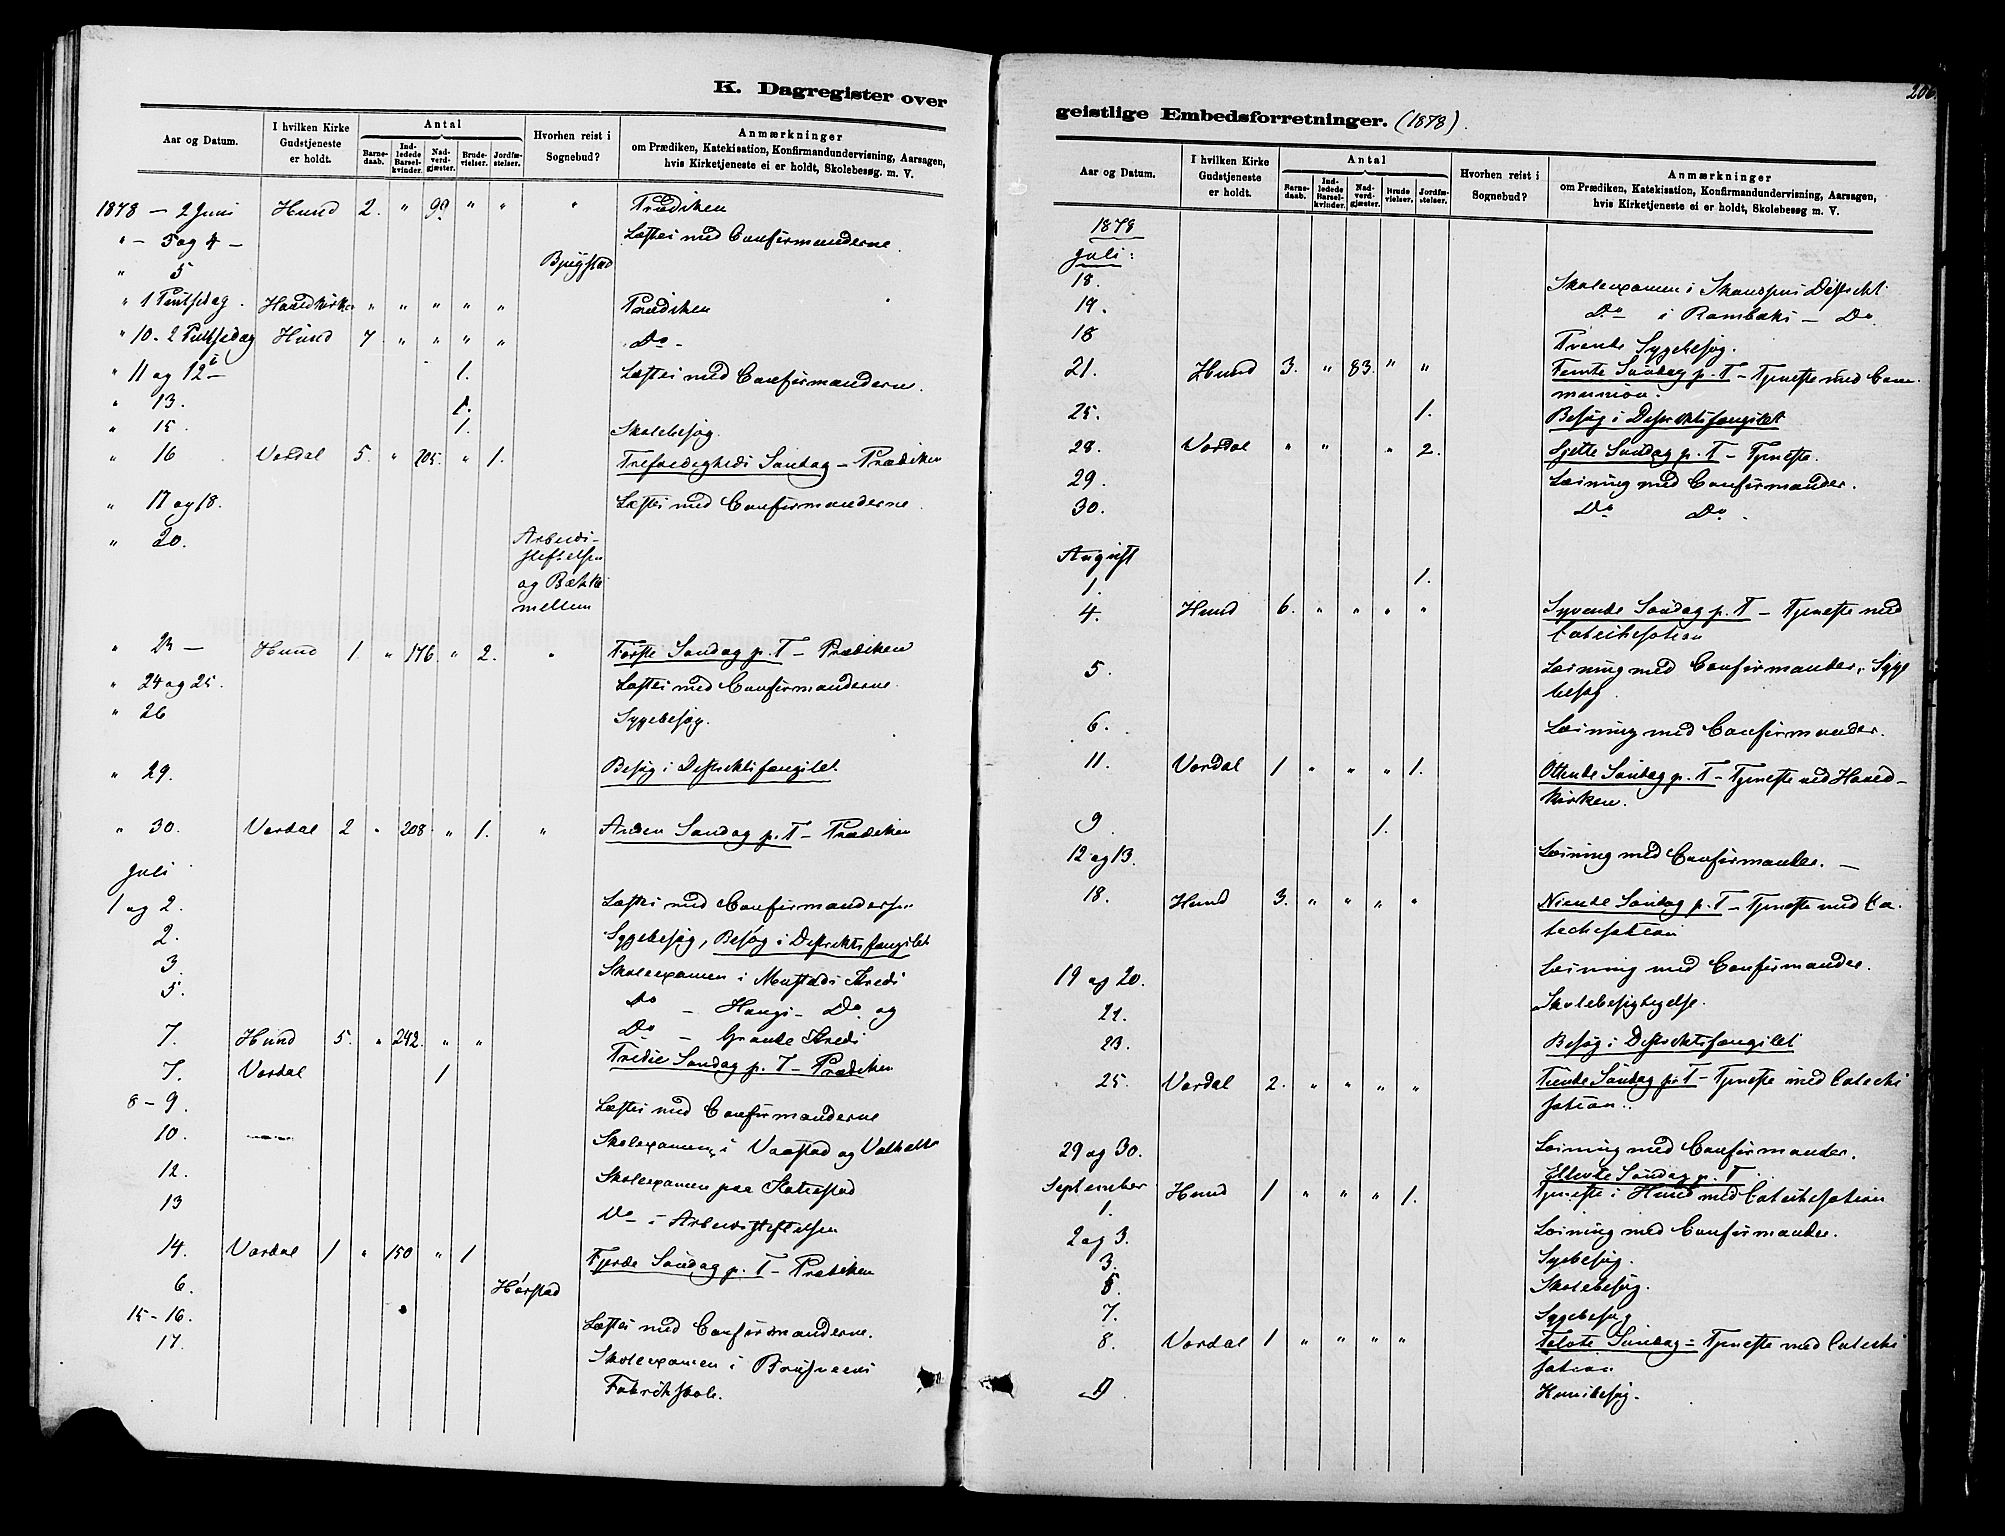 K. Dagregister over
Aar og Datum. I hvilken Kirke Gudstjeneste er holdt. Antal Barne-daab. Ind-ledede Barsel-kvinder. Nad-verd-gjæster. Brude-vielser. Jordfæ-stelser. Hvorhen reist i Sognebud? Anmærkninger om Prædiken, Katekisation, Konfirmandundervisning, Aarsagen, hvis Kirketjeneste ei er holdt, Skolebesøg. m. V.
1878 – 2 Juni Hund 2. " 99 " " " Prædiken
" – 5 og 4 – Læstes med Confirmanderne.
" 5 Bjugstad
" 1 Pintsedag. Hovedkirken " " " " " Prædiken
" 10. 2 Pintsedag Hund 7 " " " " Do –
" 11 og 12 – 1. Læstes med Confirmanderne.
" 13. 1.
" 15. 1. Skolebesøg.
" 16 Vardal 5. " 205. " 1. Trefoldigheds Søndag – Prædiken
" 17 og 18. Læstes med Confirmanderne.
" 20. Arbeids-
stiftelsen
og Bække
mellem
" 23 – Hund 1. " 176. " 2. " Første Søndag p. T – Prædiken
" 24 og 25. Læstes med Confirmanderne.
" 26 Sygebesøg.
" 29. Besøg i Distriktsfængslet.
" 30. Vardal 2 " 208 " 1. " Anden Søndag p. T – Prædiken
Juli
1 og 2. Læstes med Confirmanderne
2. Sygebesøg, Besøg i Distriktsfængslet
3. Skoleexamen i Mustads Kreds
5. Do – – Do og
Do – Kreds
7. Hund 5. " 242. " " Tredie Søndag p. T – Prædiken
7. Vardal 1
8 – 9. Læstes med Confirmanderne
10. Skoleexamen i og
12. Skoleexamen paa
13 Do – i Arbeidsstiftelsen
14. Vardal 1 " 150 " 1 Fjerde Søndag p. T – Prædiken
6. Hørstad
15 – 16. Læstes med Confirmanderne.
17. Skoleexamen i
Fabrikskole.
206.
geistlige Embedsforretninger. (1878).
Aar og Datum. I hvilken Kirke Gudstjeneste er holdt. Antal Barne-daab. Ind-ledede Barsel-kvinder. Nad-verd-gjæster. Brude vielser. Jordfæ-stelser. Hvorhen reist i Sognebud? Anmærkninger om Prædiken, Katekisation, Konfirmandundervisning, Aarsagen, hvis Kirketjeneste ei er holdt, Skolebesøg m. V.
1878
Juli:
18. Skoleexamen i Distrikt
19. Do i – Do
18 Trende Sygebesøg.
21. Hund 3. " 83. " " Femte Søndag p. T – Tjeneste med Com-
munion.
25. 1. Besøg i Distriktsfængslet
28. Vardal " " " 2. Sjette Søndag p. T – Tjeneste.
29. Læsning med Confirmander.
30. Do Do –
August
1. 1.
4. Hund 6. " " " " Syvende Søndag p. T – Tjeneste med
Catechesation
5. Læsning med Confirmander. Syge
besøg.
6. Læsning med Confirmander.
11. Vardal 1 " " " 1. Ottende Søndag p. T – Tjeneste ved Hoved-
kirken.
9 1.
12 og 13. Læsning med Confirmander. –
18. Hund 3. " " " " Niende Søndag p. T – Tjeneste med Ca-
techesation
19 og 20. Læsning med Confirmander.
21. Skolebesigtigelse.
23. Besøg i Distriktsfængslet
25. Vardal 2. " " " " Tiende Søndag p. T – Tjeneste med Catechi
sation.
29 og 30. Læsning med Confirmander.
Ellevte Søndag p. T.
September 1. Hund 1 " " " 1. Tjeneste i Hund med Catechesation
2 og 3. Læsning med Confirmander.
3. Sygebesøg.
5. Skolebesøg.
7. Sygebesøg
8. Vardal 1 " " " " Tolvte Søndag – Tjeneste med Catechi
sation
9. Husbesøg.